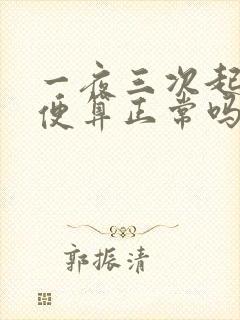 一夜三次起
便算正常吗
郭振清